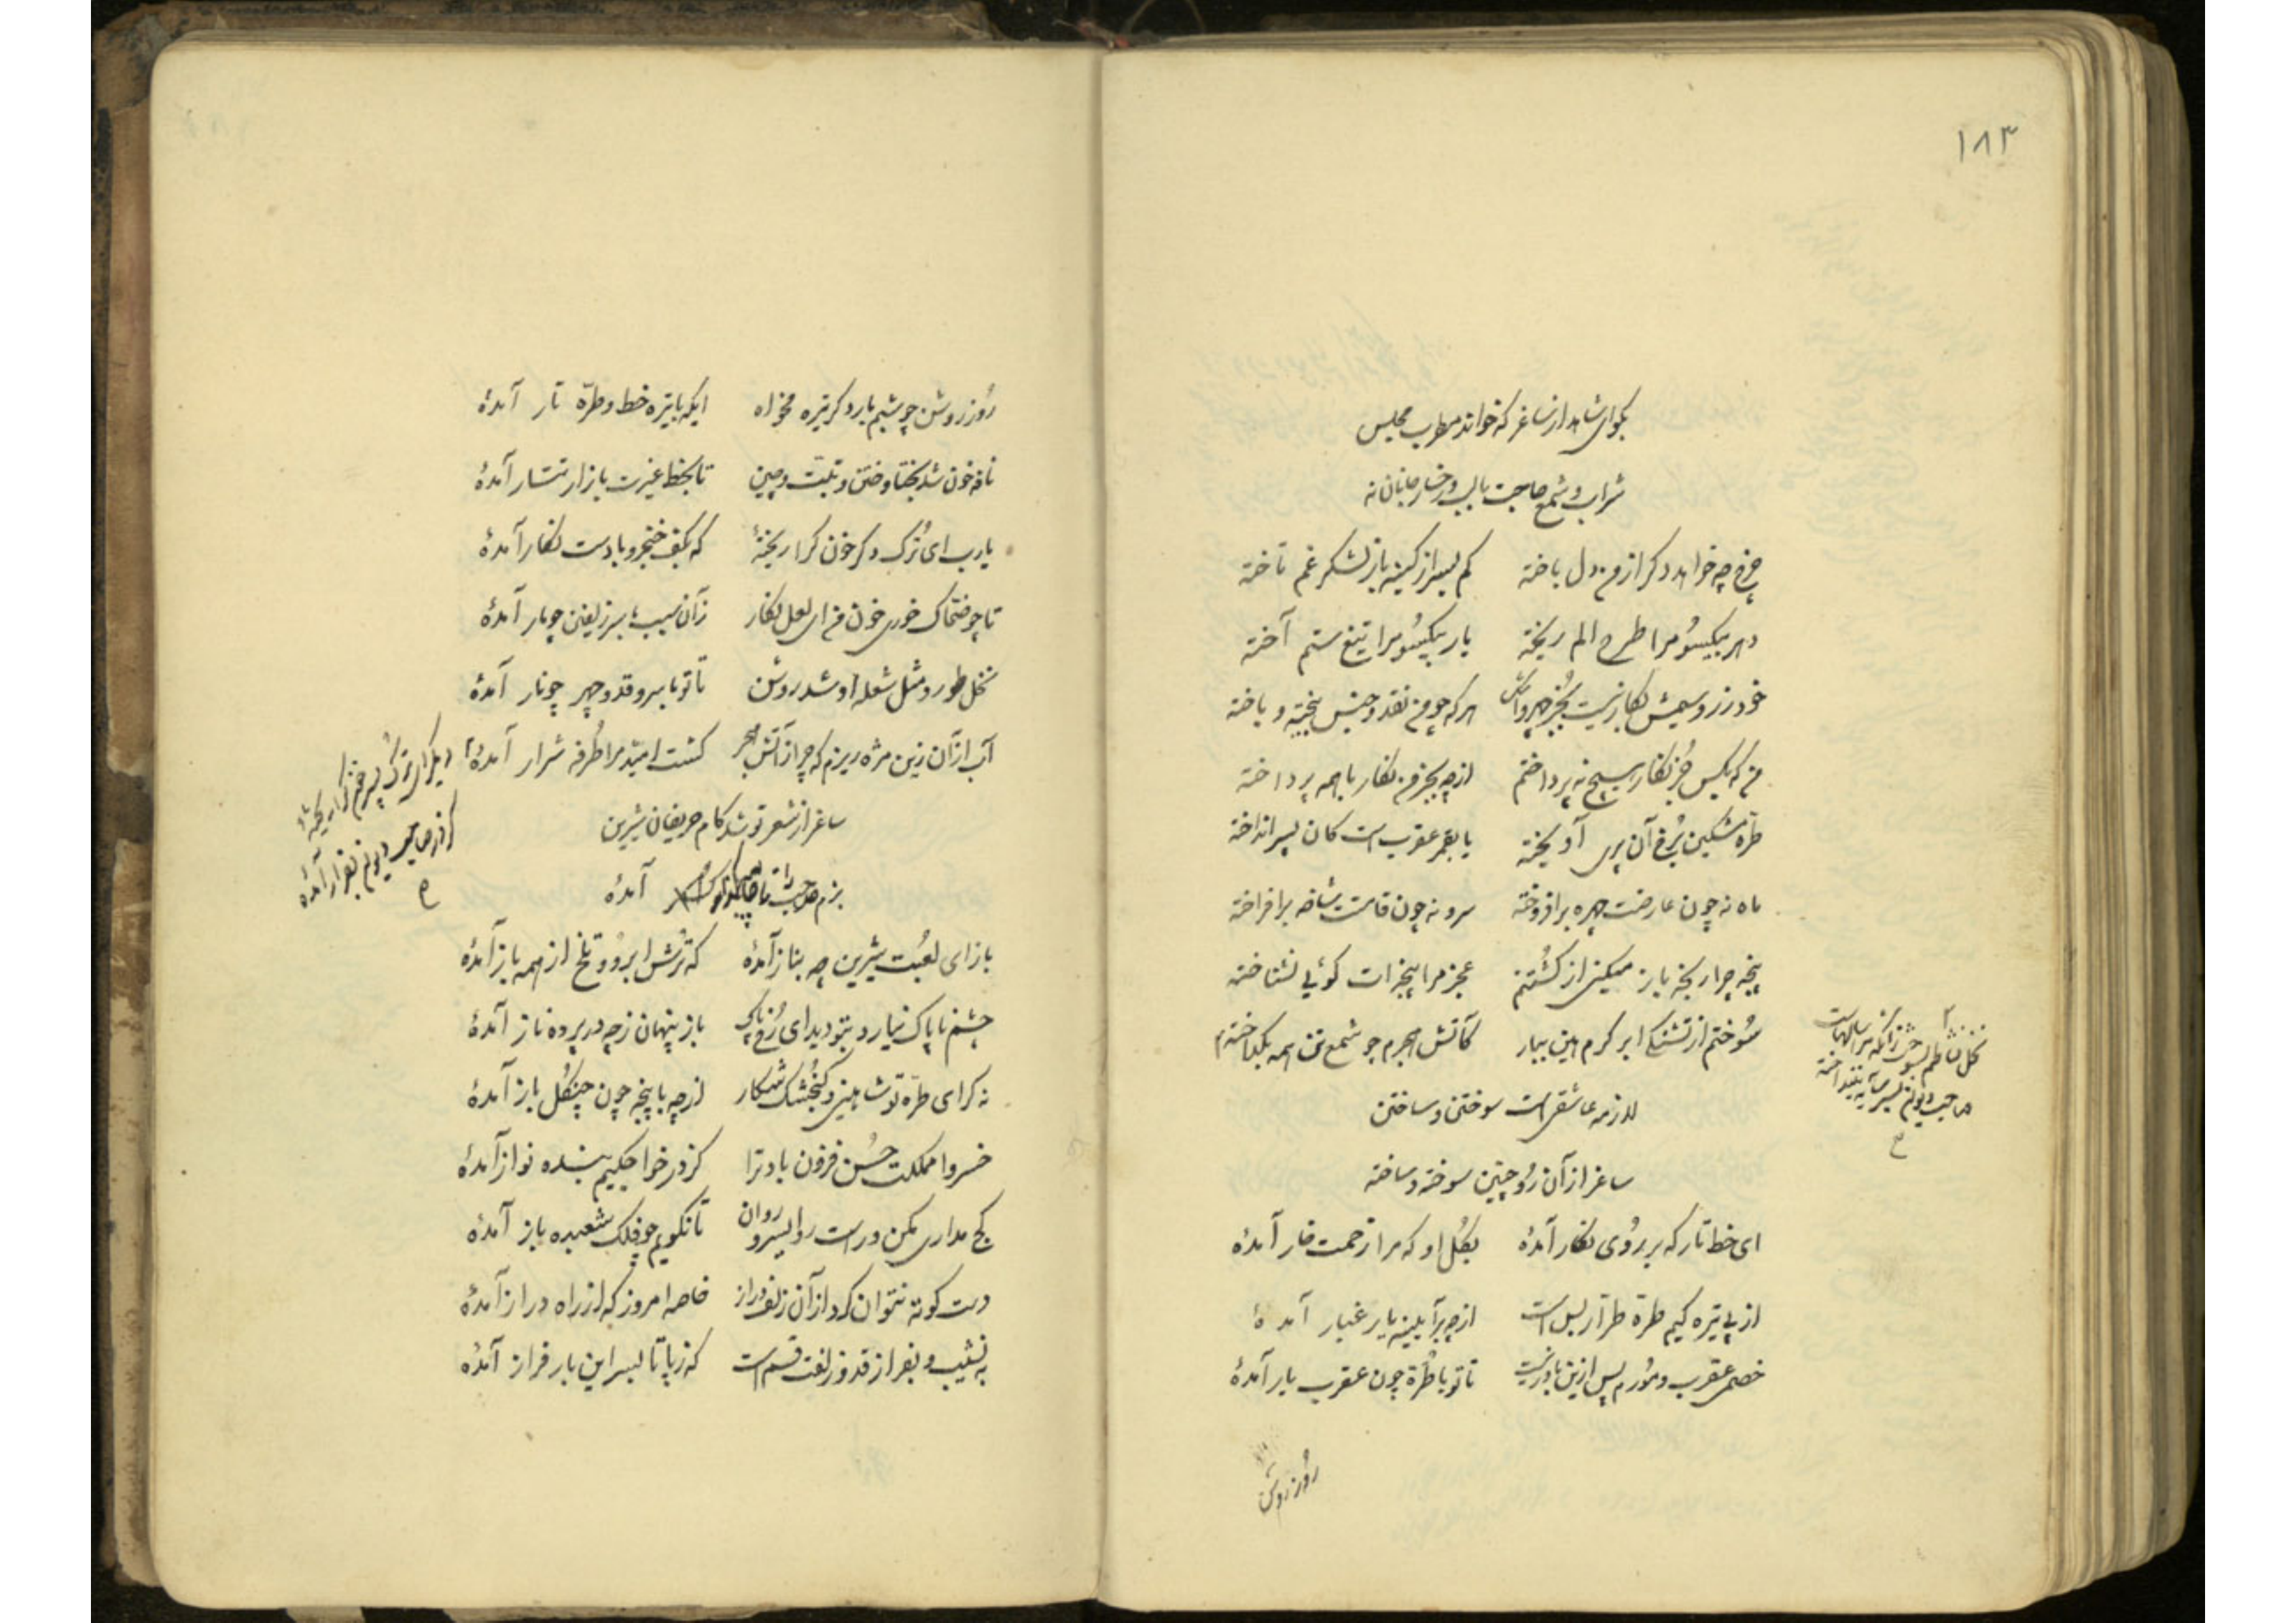 ۱۸۳
بگو ای شاهد از ساغر که خواند مطرب مجلس
شراب و شمع حاجت با لب و رخسار جانان نه
چرخ چه خواهد دگر از من دل باخته کم بسر از کینه باز لشکر غم تاخته
دهر بیکسو مرا طرح الم ریخته یار بیکسو مرا تیغ ستم آخته
خود زر و سیمش بکار نیست بجز چهر و اشک هر که چو من نقد و جنس پخته و باخته
من که بکس جز نگار هیچ نه پرداختم از چه بجز من نگار با همه پرداخته
طره مشکین برخ آن پری آویخته یا بقمر عقرب است کان بسر انداخته
ماه نه چون عارضت چهره برافروخته سرو نه چون قامتت شاخه برافراخته
پنجه چرا رنجه باز میکنی از کشتنم عجز مرا پنجه‌ات گوئی نشناخته
سوختم از تشنگی ابر کرم هین ببار کاتش هجرم چو شمع تن همه بگداخته
نخل نشاطم بسوخت زآنکه مرا سالهاست
صاحب دیوانم بسر سایه نینداخته
لازمه عاشقی است سوختن و ساختن
ساغر از آن رو چنین سوخته و ساخته
ای خط تار که بر روی نگار آمدهٔ بگل او که مرا زحمت خار آمدهٔ
از پی تیره گیم طرهٔ طرار بس است از چه بر آیینه یار غبار آمدهٔ
خصمی عقرب و مورم پس ازین باور نیست تا تو با طرهٔ چون عقرب یار آمدهٔ
روز روشن
روز روشن چو شبم بار دگر تیره مخواه ایکه با تیره خط و طرّه تار آمدهٔ
نافه خون شد بختا و ختن و تبّت و چین تا بخط غیرت بازار تتار آمدهٔ
یارب ای ترک دگر خون کرا ریختهٔ که بکف خنجر و با دست نگار آمدهٔ
تا چو ضحاک خوری خون من ای لعل نگار زآن سبب بر سر زلفین چو مار آمدهٔ
نخل طور و مثل شعله او شد روشن تا تو با سرو قد و چهر چو نار آمدهٔ
آب از آن زین مژه ریزم که چرا ز آتش هجر کشت امید مرا طرفه شرار آمدهٔ
دیگر ای ترک پسر خون کرا ریختهٔ
کز در صاحب دیوان بفرار آمدهٔ
ساغر از شعر تو شد کام حریفان شیرین
بزم صاحب را تا آمدهٔ
باز ای لعبت شیرین چه بناز آمدهٔ که ترش ابرو و تلخ از همه باز آمدهٔ
چشم ناپاک نیارد بتو دید ای رخ پاک باز پنهان ز چه در پرده ناز آمدهٔ
نه گر ای طرّه تو شاهینی و گنجشک شکار از چه با پنجه چون چنگل باز آمدهٔ
خسروا مملکت حسن فزون باد ترا کز در خواجگیم بنده نواز آمدهٔ
کج مداری مکن و راست روا سرو روان تا نگویم چو فلک شعبده باز آمدهٔ
دست کوته نتوان کرد از آن زلف دراز خاصه امروز که از راه دراز آمدهٔ
به نشیب و بفراز قد و زلفت قسم است که ز پا تا بسر این بار فراز آمدهٔ